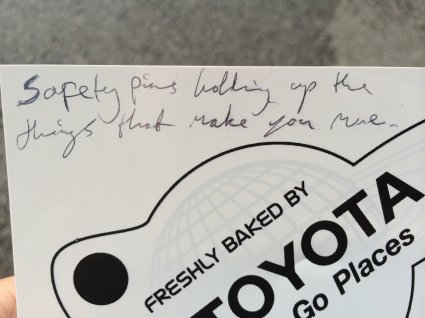 Safety pins holding up the
things that make you mine.
FRESHLY BAKED BY
TOYOTA
Go Places